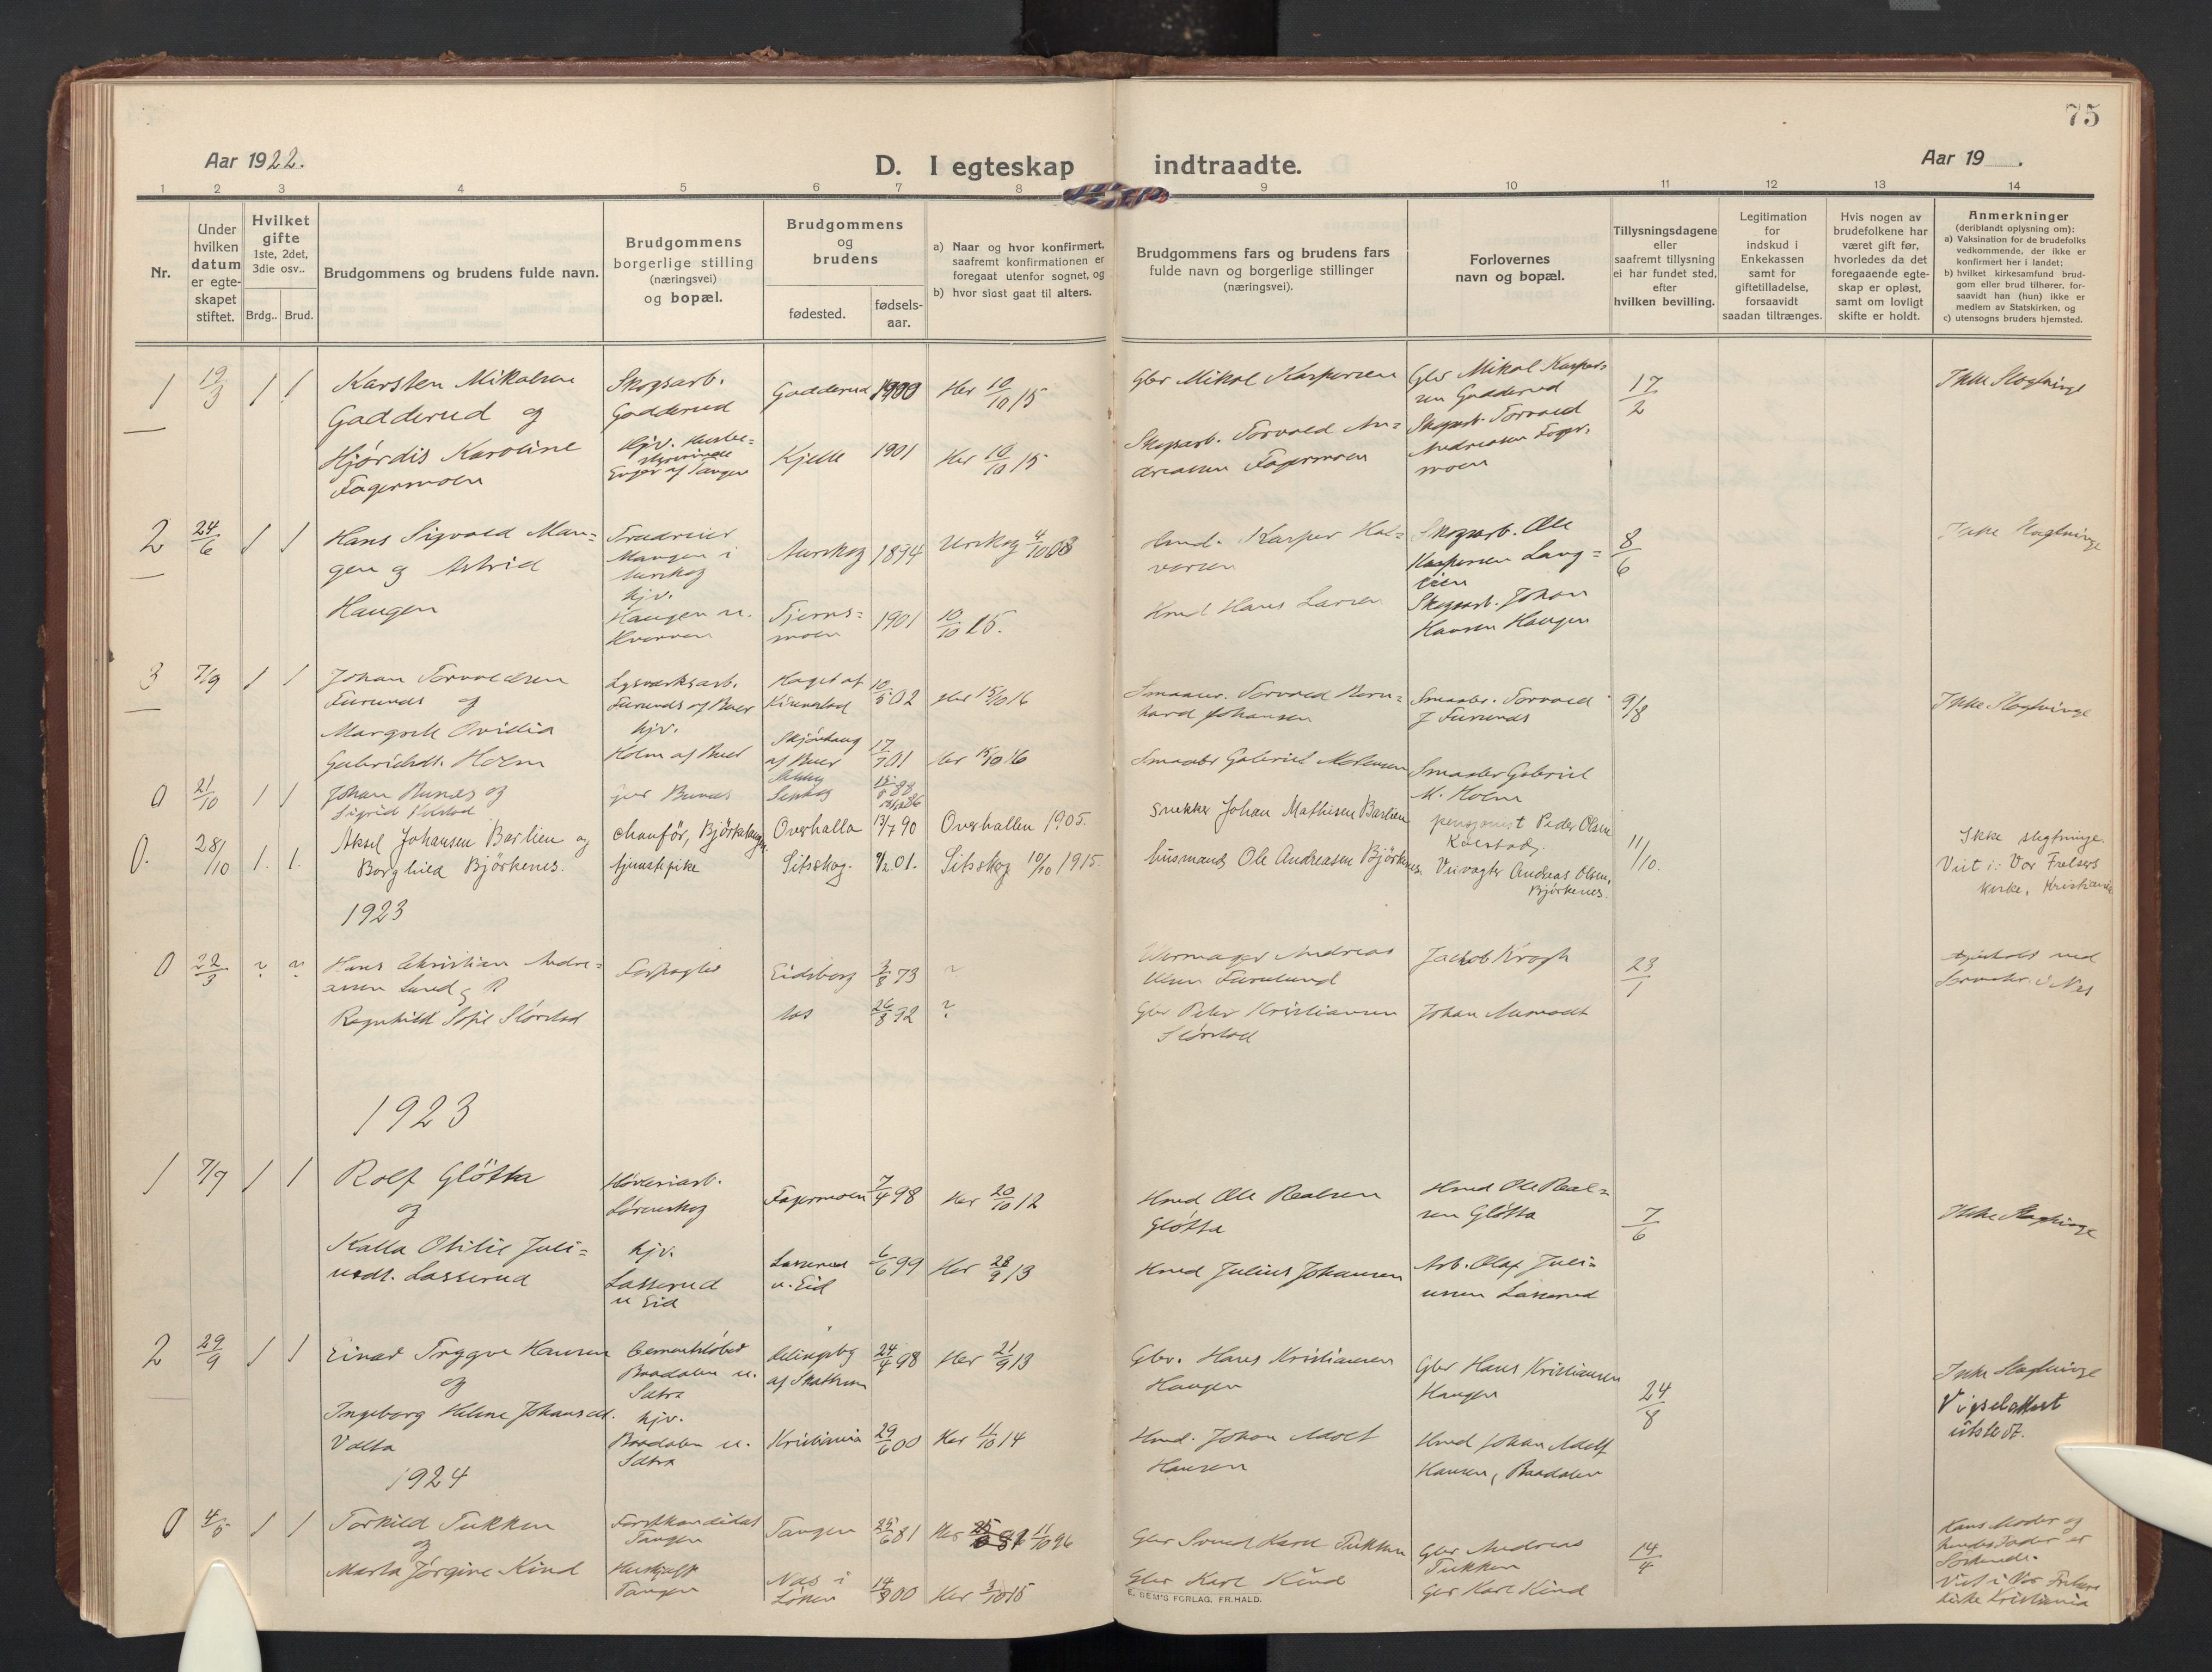 75
Aar 1922.
D. I egteskap indtraadte.
Aar 19 .
1 2 3 4 5 6 7 8 9 10 11 12 13 14
Nr.
Under hvilken datum er egteskapet stiftet.
Hvilket gifte 1ste, 2det, 3die osv..
Brdg.. Brud.
Brudgommens og brudens fulde navn.
Brudgommens borgerlige stilling (næringsvei) og bopæl.
Brudgommens og brudens
fødested.
fødsels-aar.
a) Naar og hvor konfirmert, saafremt konfirmationen er foregaat utenfor sognet, og
b) hvor sidst gaat til alters.
Brudgommens fars og brudens fars fulde navn og borgerlige stillinger (næringsvei).
Forlovernes navn og bopæl.
Tillysningsdagene eller saafremt tillysning ei har fundet sted, efter hvilken bevilling.
Legitimation for indskud i Enkekassen samt for giftetilladelse, forsaavidt saadan tiltrænges.
Hvis nogen av brudefolkene har været gift før, hvorledes da det foregaaende egteskap er opløst, samt om lovligt skifte er holdt.
Anmerkninger (deriblandt oplysning om):
a) Vaksination for de brudefolks vedkommende, der ikke er konfirmert her i landet;
b) hvilket kirkesamfund brudgom eller brud tilhører, forsaavidt han (hun) ikke er medlem av Statskirken, og
c) utensogns bruders hjemsted.
1 19/3 1 1 Karsten Mikalsen Skogsarb. Gadderud 1900 Her 10/10 15 Gbr Mikal Kaspersen Gbr Mikal Kasper- 17/2 Ikke Slegtninge
Gadderud og Gadderud sen Gadderud
Hjørdis Karoline Kjelle 1901 Her 10/10 15 Skogsarb. Torvald An= Skogsarb. Torvald
Fagermoen Enger af Tangen dreasen Fagermoen Andreasen Fager-
moen
2 24/6 1 1 Hans Sigvald Man= Mangen i Aurskog 1894 Urskog 4/10 08 Hmd. Kasper Hal= Skogsarb. Ole 8/6 Ikke Slegtninge
gen og Astrid Aurskog vorsen Kaspersen Lang=
Haugen hjv. Haugen u. Fjerns= 1901 10/10 15. Hmd Hans Larsen Skogsarb. Johan
moen Hansen Haugen
3 7/9 1 1 Johan Torvaldsen Lysverksarb. 10/5 02 Her 15/10 16 Torvald Bern= Torvald 9/8 Ikke Slegtninge
Furunds og Furunds af Buer hard Johansen J Furunds
Margrete Ovidia hjv. 17/7 01 Her 15/10 16 Gabriel
Gabrielsdt. Holm Holm af Buer af Buer M. Holm
0 21/10 1 1 Johan Bunes og Bunes
Sigrid
0. 28/10 1. 1. Aksel Johansen Barlien og chauför, Bjørkelangen. Overhalla 13/7 90 Overhallen 1905. Snekker Johan Mathisen Barlien pensjonist Peder Olsen Kolstad. 11/10. Ikke slegtninge.
Borghild Bjørkenes. tjenestepike Sitskog. 9/2 01. Sitskog 10/10 1915. husmand Ole Andreasen Bjørkenes. Veivogter Andreas Olsen, Bjørkenes. Viet i: Vor Frelsers kirke, Kristiania
1923
0 22/3 ? ? Hans Christian Andre= Eidsberg 3/8 73 ? Urmager Andreas Jacob Krogh 23/1
asen Lund og Olsen Furulund i Nes
Ragnhild Sofie Slørstad 26/8 92 ? Gbr Peter Kristiansen Johan Aamodt
Slørstad
1923
1 7/9 1 1 Rolf Gløtta Høveriarb. Fagermoen 7/4 98 Her 20/10 12 Hmd Ole Realsen Hmd Ole Real= 7/6 Ikke Slegtninge
og Lørenskog Gløtta sen Gløtta
Kalla Otilie Juli= hjv. Lasserud 6/6 99 Her 28/9 13 Hmd Julius Johansen Arb. Olaf Juli=
usdt. Lasserud Lasserud u Eid u. Eid usen Lasserud
2 29/9 1 1 Einar Trygve Hansen Baadalen u. Sætra 24/4 98 Her 21/9 13 Gbr. Hans Kristiansen Gbr Hans Kristiansen 24/8 Ikke Slegtninge
og Haugen Haugen Vigselattest utstedt.
Ingeborg Helene Johansdt. hjv. Kristiania 29/6 00 Her 11/10 14 Hmd. Johan Adolf Hmd Johan Adolf
Valla Baadalen u. Sætra Hansen Hansen, Baadalen
1924
0 4/5 1 1 Torkild Tukken Forstkandidat Tangen 25/6 81 Her 11/10 96 Gbr Svend Karl Tukken Gbr Andreas 14/4 Hans Moder og
og Tangen Tukken hendes Fader er
Marta Jørgine Kind Tangen Nes i Løken 14/8 00 Her 3/10 15 Gbr Karl Kind Gbr Karl Kind Søskende.
Viet i Vor Frelsers
kirke Kristiania
E. SEM'S FORLAG, FR.HALD.